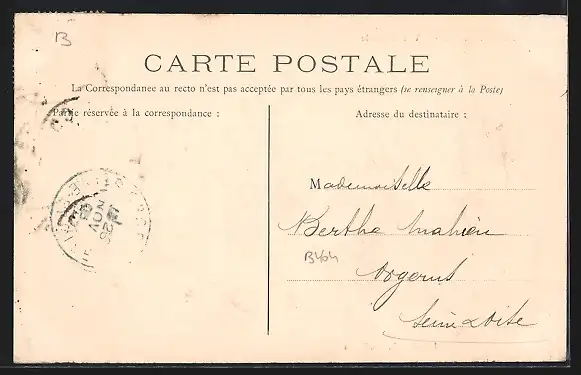 B
CARTE POSTALE
La Correspondance au recto n'est pas acceptée par tous les pays étrangers (se renseigner à la Poste)
Partie réservée à la correspondance :
Adresse du destinataire :
Mademoiselle
Berthe Mahieu
B464
Orgerus
Seine & Oise
26
NOV